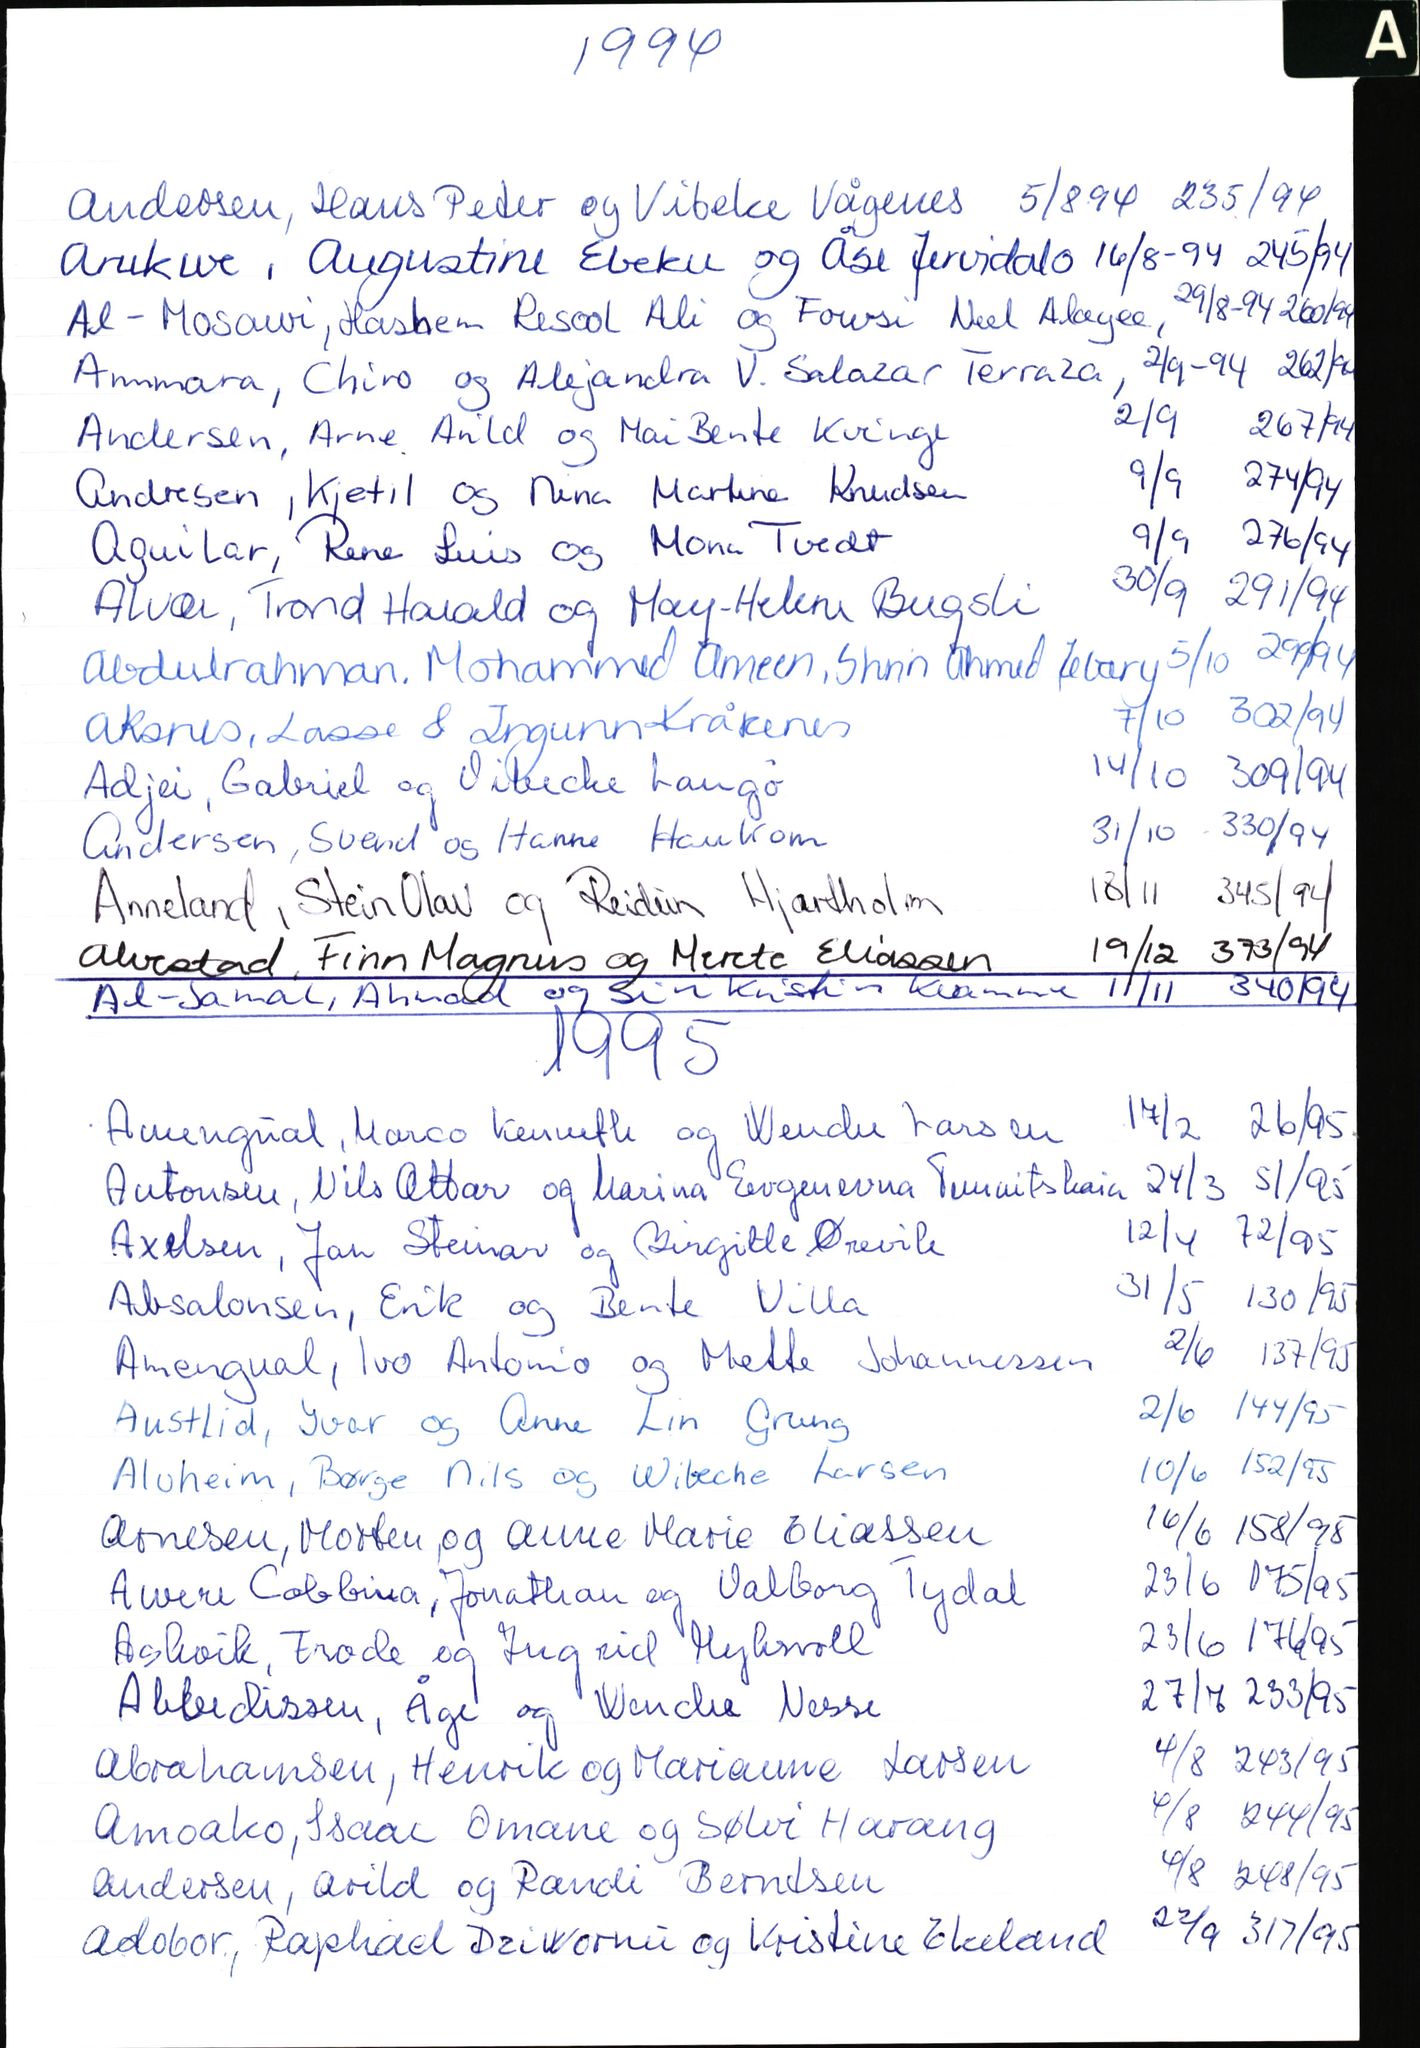 A
1994
Andersen, Hans Peter og Vibeke Vågenes 5/8 94 235/94
Arukwe, Augustine Ebeku og Åse Jervidalo 16/8-94 245/94
Al-Mosawi, Hashem Resool Ali og Fowsi Neel Alayee, 29/8-94 260/94
Ammara, Chiro og Alejandra V. Salazar Terraza, 2/9-94 262/94
Andersen, Arne Arild og Mai Bente Kvinge 2/9 267/94
Andresen, Kjetil og Nina Martine Knudsen 9/9 274/94
Aguilar, Rene Luis og Mona Tvedt 9/9 276/94
Alvær, Trond Harald og May-Helene Bugsli 30/9 291/94
Abdulrahman. Mohammed Ameen, Shrin Ahmed Zebary 5/10 299/94
Aksnes, Lasse & Ingunn Kråkenes 7/10 302/94
Adjei, Gabriel og Vibecke Langö 14/10 309/94
Andersen, Svend og Hanne Haukom 31/10 330/94
Anneland, Stein Olav og Reidun Hjartholm 18/11 345/94
Alvestad, Finn Magnus og Merete Eliassen 19/12 373/94
Al-Jamal, Ahmad og Siri Kristin Kvamme 11/11 340/94
1995
Amengual, Marco Kenneth og Wenche Larsen 17/2 26/95
Antonsen, Nils Ottar og Marina Evgenevna 24/3 51/95
Axelsen, Jan Steinar og Birgitte Ørevik 12/4 72/95
Absalonsen, Erik og Bente Villa 31/5 130/95
Amengual, Ivo Antonio og Mette Johannessen 2/6 137/95
Austlid, Ivar og Anne Lin Grung 2/6 144/95
Alvheim, Børge Nils og Wibeche Larsen 10/6 152/95
Arnesen, Morten og Anne Marie Eliassen 16/6 158/95
Awere Cobbina, Jonathan og Valborg Tydal 23/6 175/95
Askvik, Frode og Ingrid Myksvoll 23/6 176/95
Abbedissen, Åge og Wenche Nesse 27/7 233/95
Abrahamsen, Henrik og Marianne Larsen 4/8 243/95
Amoako, Isaac Omane og Sølvi Harang 4/8 244/95
Andersen, Arild og Randi Berntsen 4/8 248/95
Adobor, Raphael Dzikornu og Kristine Ekeland 22/9 317/95